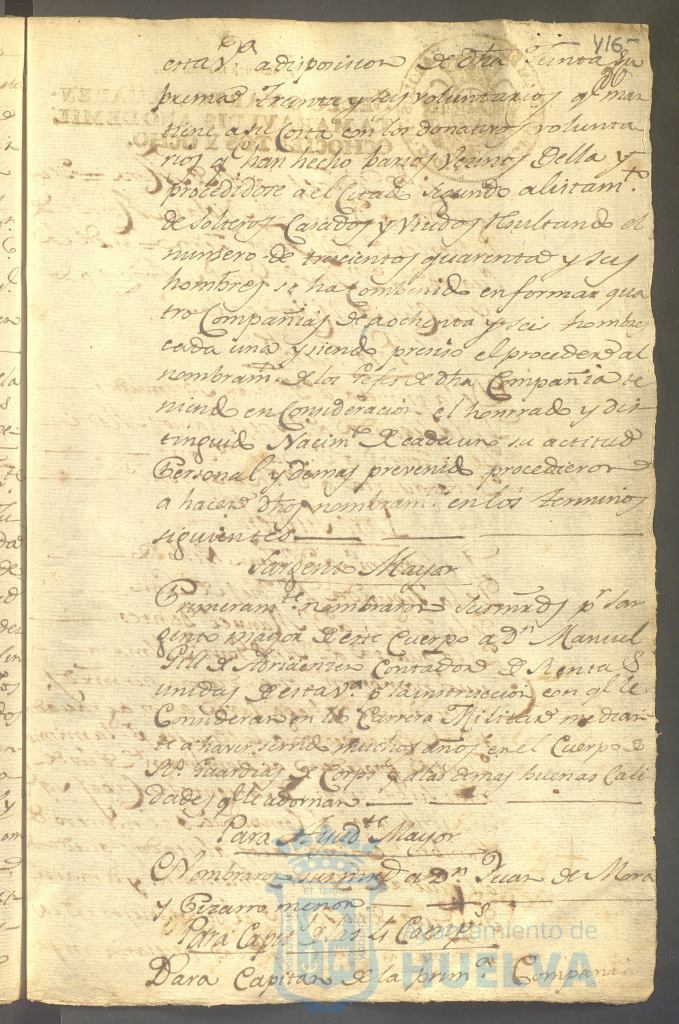 116
esta V.ª a disposicion de dha Junta Su
prema Treinta y seis voluntarios q.e man
tiene a su Costa con los donativos volunta
rios q.e han hecho barios Vezinos della y
procedidose a el Citado segundo alistam.to
de Solteros Casados y Viudos Resultando el
numero de trescientos quarenta y seis
hombres se ha combenido en formar qua
tro Compañias de a ochenta y seis hombres
cada una y siendo preciso el proceder al
nombram.to de los Gefes de dha Compañia te
niendo en Consideracion el honrrado y dis
tinguido Nacim.to de cada uno su actitud
Personal y demas prevenido procedieron
a hacer dhos nombram.tos en los terminos
siguientes
Sargento Mayor
Primeram.te nombraron Sus mrds p.r Sar
gento mayor de este Cuerpo a D.n Manuel
de Contador de Rentas
unidas de esta V.ª p.r la instruccion con q.e le
Consideran en la Carrera Militar median
te a haver servido muchos años en el Cuerpo de
R.s Guardias de Corps y a las demas buenas Cali
dades q.e le adornan
Para Ayud.te Mayor
Nombraron sus mrds a D.n Juan de Mora
y Pizarro menor
Para Capit.s de las 4 Comp.s
Para Capitan de la prim.a Compañia
Ayuntamiento de
HUELVA